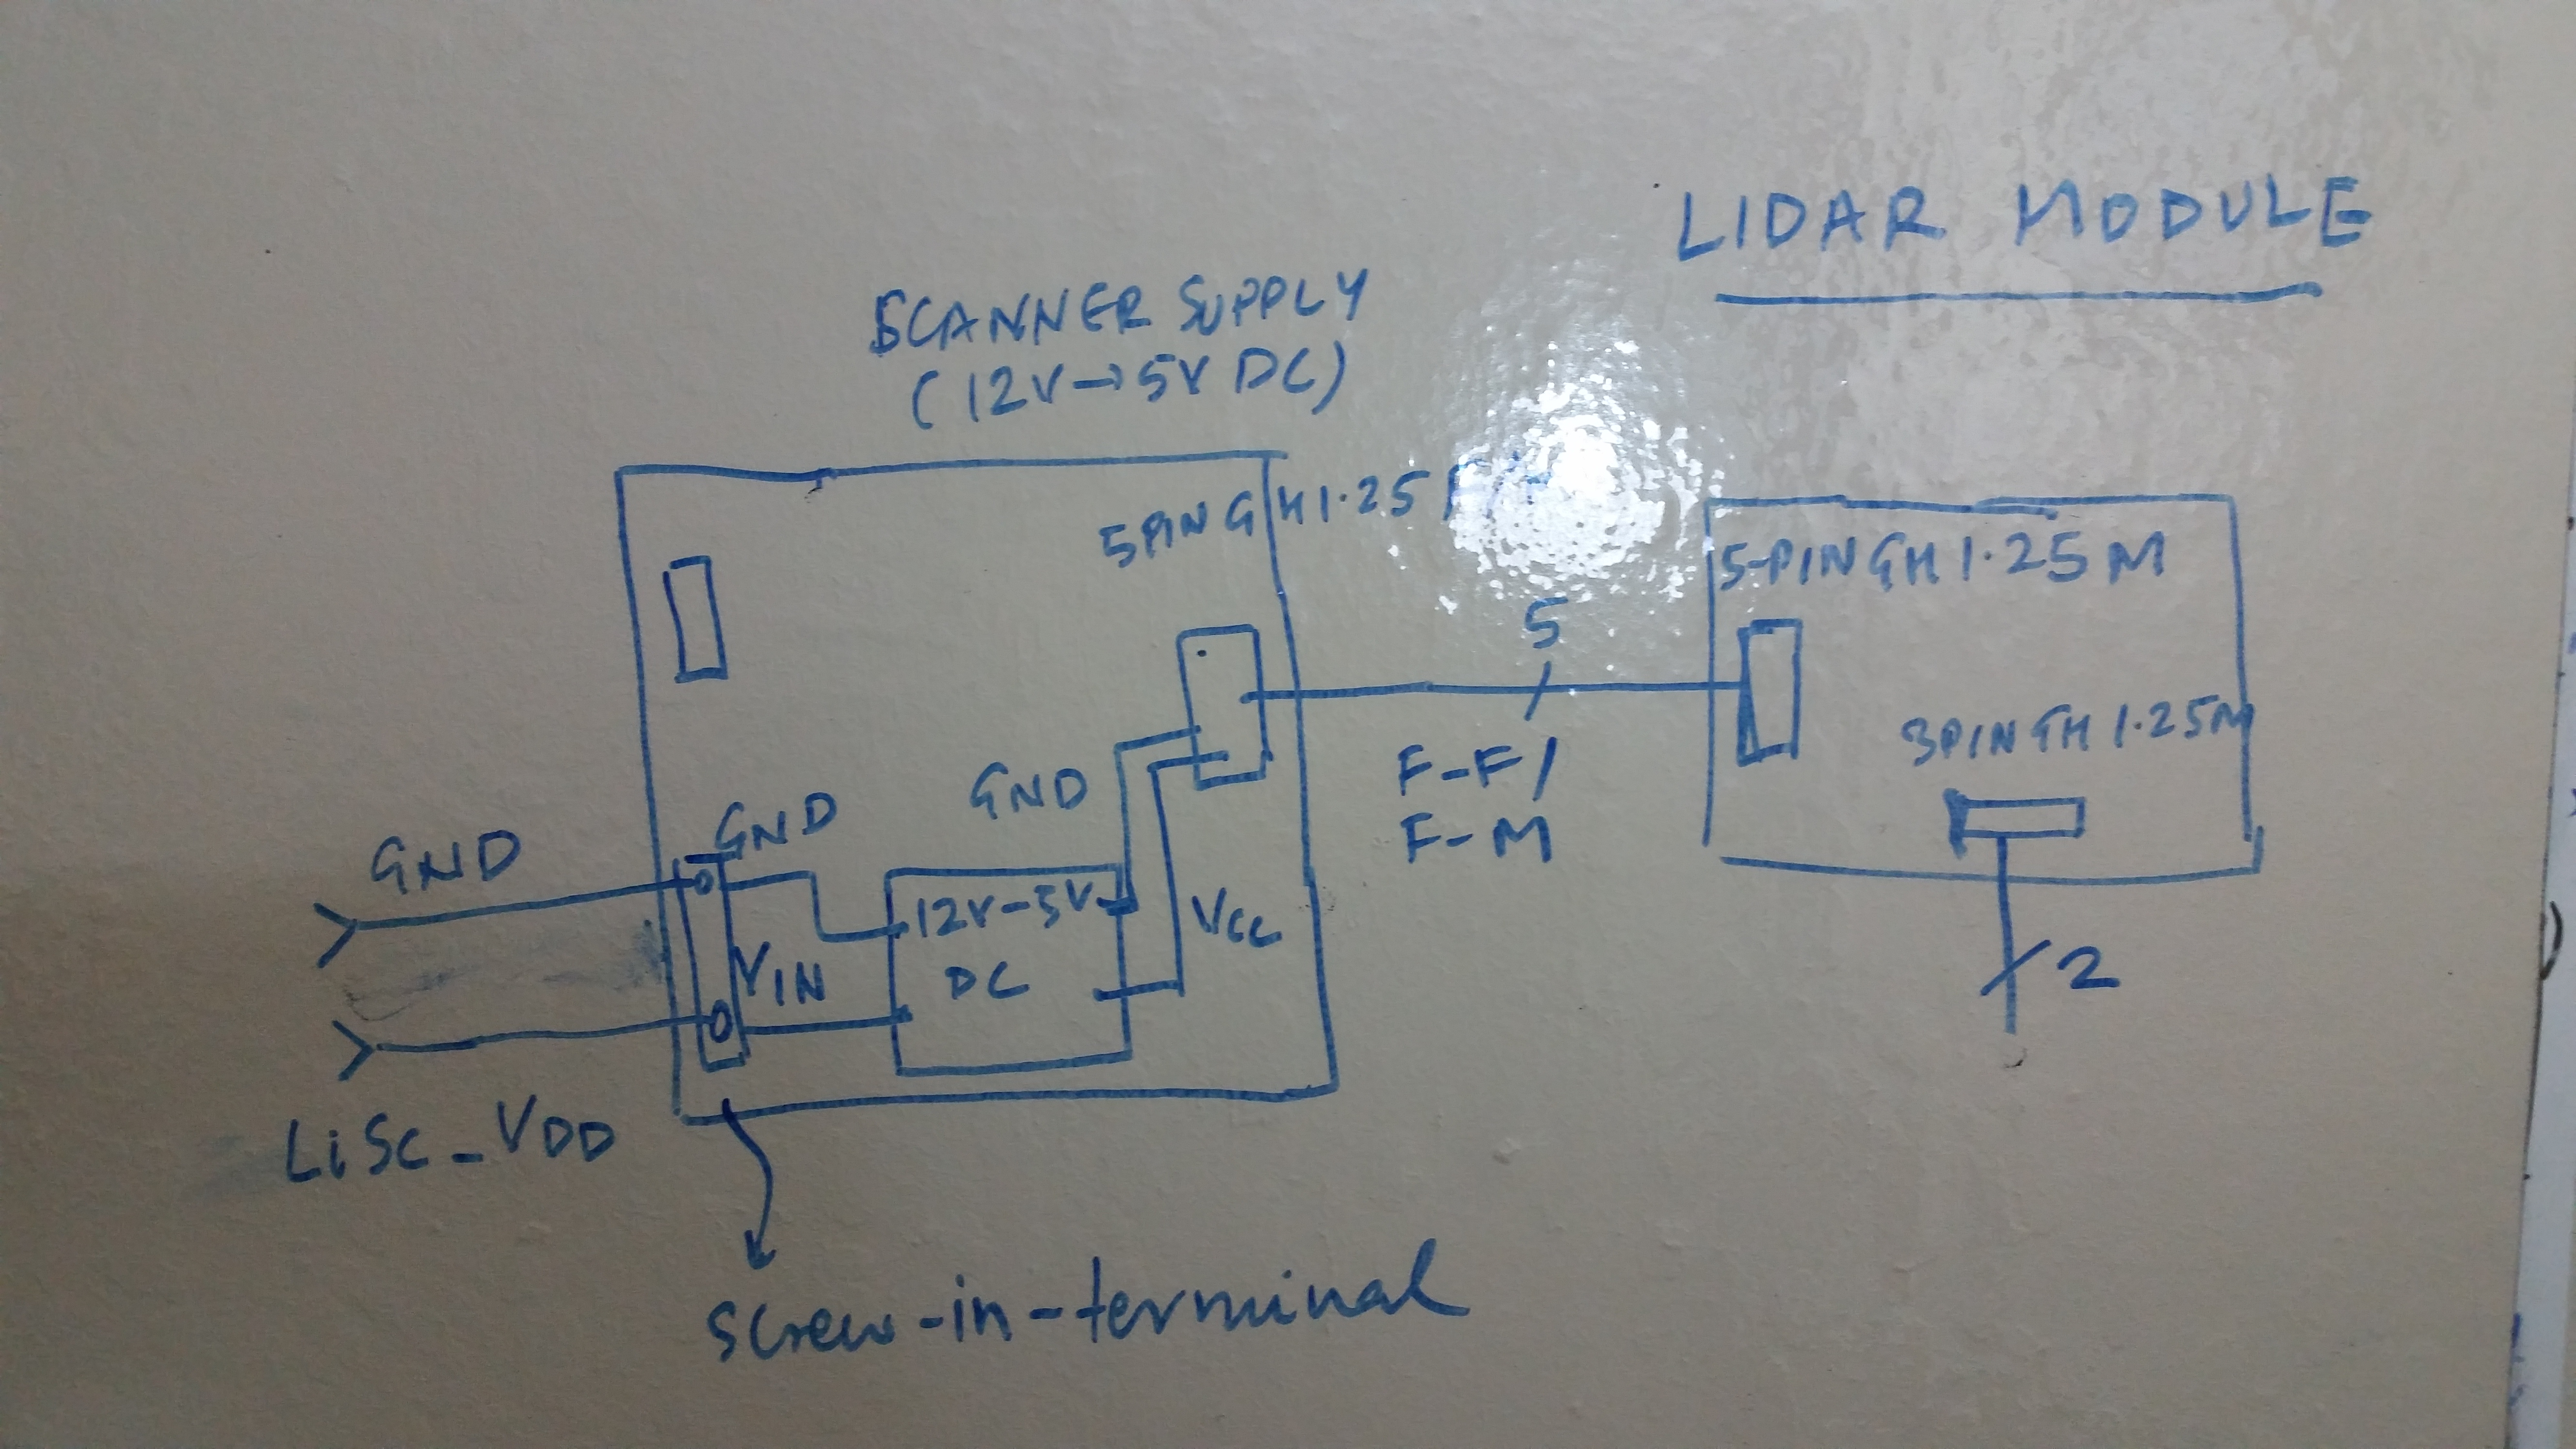 LIDAR MODULE
SCANNER SUPPLY
(12V→5V DC)
5PIN GH1.25
5-PIN GH 1.25 M
5
3PIN GH 1.25M
F-F/
F-M
GND
GND
GND
12V-5V
DC
VCC
VIN
2
LiSC_VDD
screw-in-terminal